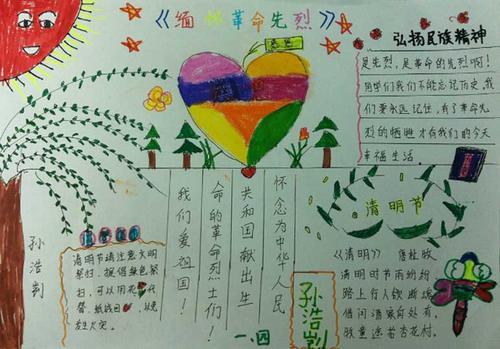 《缅怀革命先烈》
弘扬民族精神
是先烈,是革命的先烈啊!
同学们我们不能忘记历史,我
们要永远记住,有了革命先
烈的牺牲才有我们的今天
幸福生活。
清明节
《清明》 唐杜牧
清明时节雨纷纷
路上行人欲断魂
借问酒家何处有
牧童遥若杏花村。
怀念为中华人民
共和国献出生
命的革命烈士们!
我们爱祖国!
清明节请注意文明
祭扫,提倡绿色祭
扫,可以用花代
替、纸钱
发生火灾。
孙浩判
孙浩判
一.四